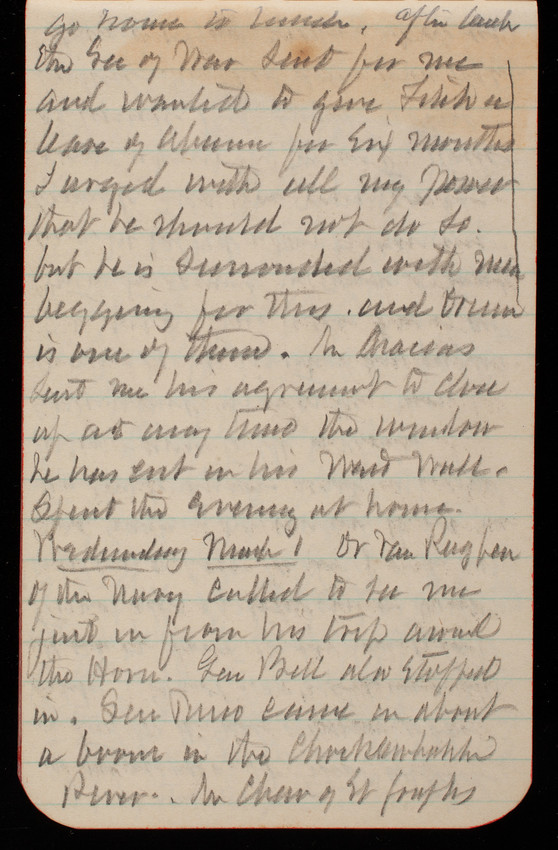 go home to lunch. After lunch
the Sec of War sent for me
and wanted to give
leave of absence for six months
I urged with all my power
that he should not do so.
but he is surrounded with men
begging for this. and Drum
is one of them. Mr
sent me his agreement to close
up at any time the window
he has cut in his West Wall.
Spent the evening at home.
Wednesday March 1 Dr Van
of the Navy called to see me
just in from his trip around
the Horn. Gen Bell also stopped
in. Sen came in about
a boom in the
River. Mr Chew of St Josephs